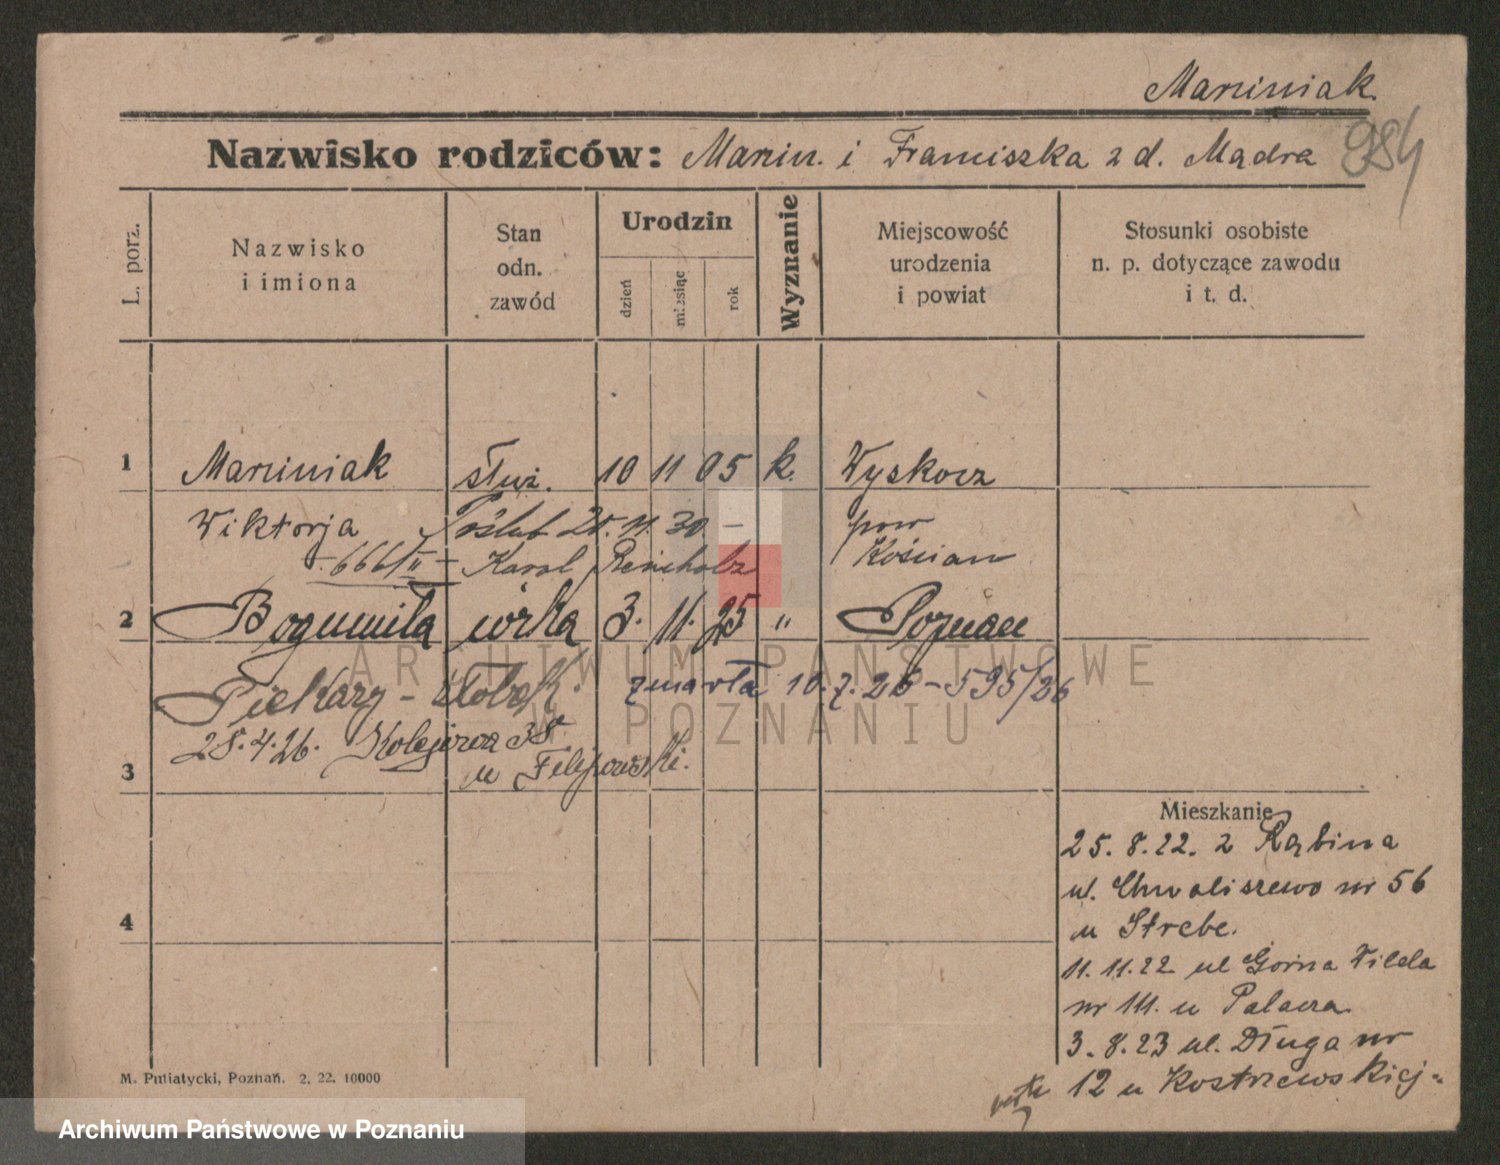 Marciniak
Nazwisko rodziców: Marcin. i Franciszka z d. Mądra
984
L. porz.
Nazwisko i imiona
Stan odn. zawód
Urodzin
dzień
miesiąc
rok
Wyznanie
Miejscowość urodzenia i powiat
Stosunki osobiste n. p. dotyczące zawodu i t. d.
1 Marciniak służ. 10 11 05 k. Wyskocz
Wiktorja Poślub 25. 11. 30 – pow
– 666/II – Karol Reinholz Kościan
2 Bogumiła córka 3. 11. 25 " Poznań
Piekary – zmarła 10. 7. 26 – 595/26
28. 4. 26. Kolejowa 38
3 u Filipowski.
Mieszkanie
25. 8. 22. z Rąbina
ul. Chwaliszewo nr 56
u Strebe.
4
11. 11. 22 ul Górna Wilda
nr 111. u Palacza
3. 8. 23 ul. Długa nr
12 u Kostrzewskiej
M. Putiatycki, Poznań. 2. 22. 10000
ARCHIWUM PAŃSTWOWE
W POZNANIU
Archiwum Państwowe w Poznaniu